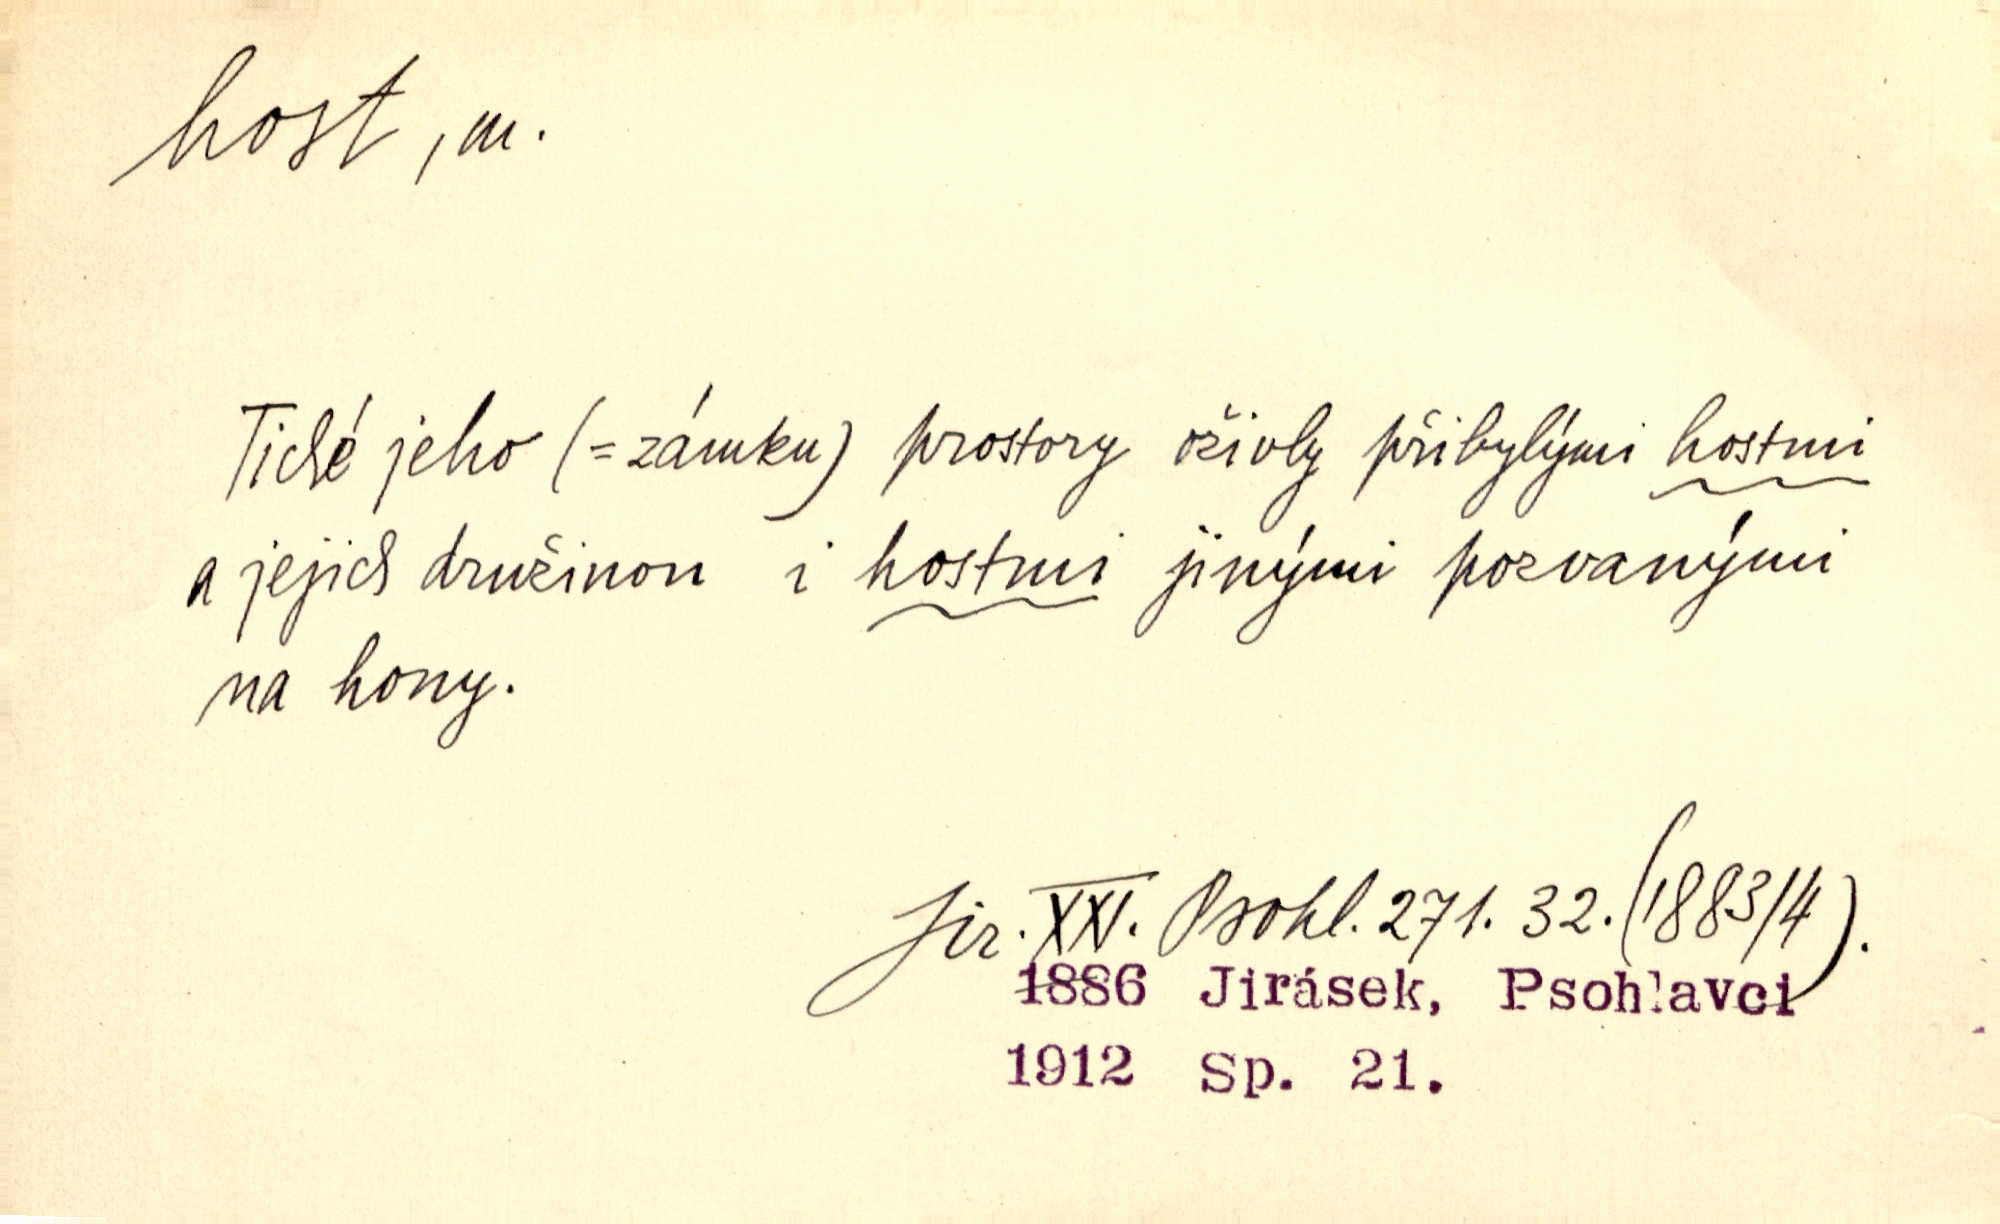 host, m.
Tiché jeho (=zámku) prostory oživly přibylými hostmi
a jejich družinou i hostmi jinými pozvanými
na hony.
Jir. XXI. Psohl. 271. 32. (1883/4).
1886 Jirásek, Psohlavci
1912 Sp. 21.